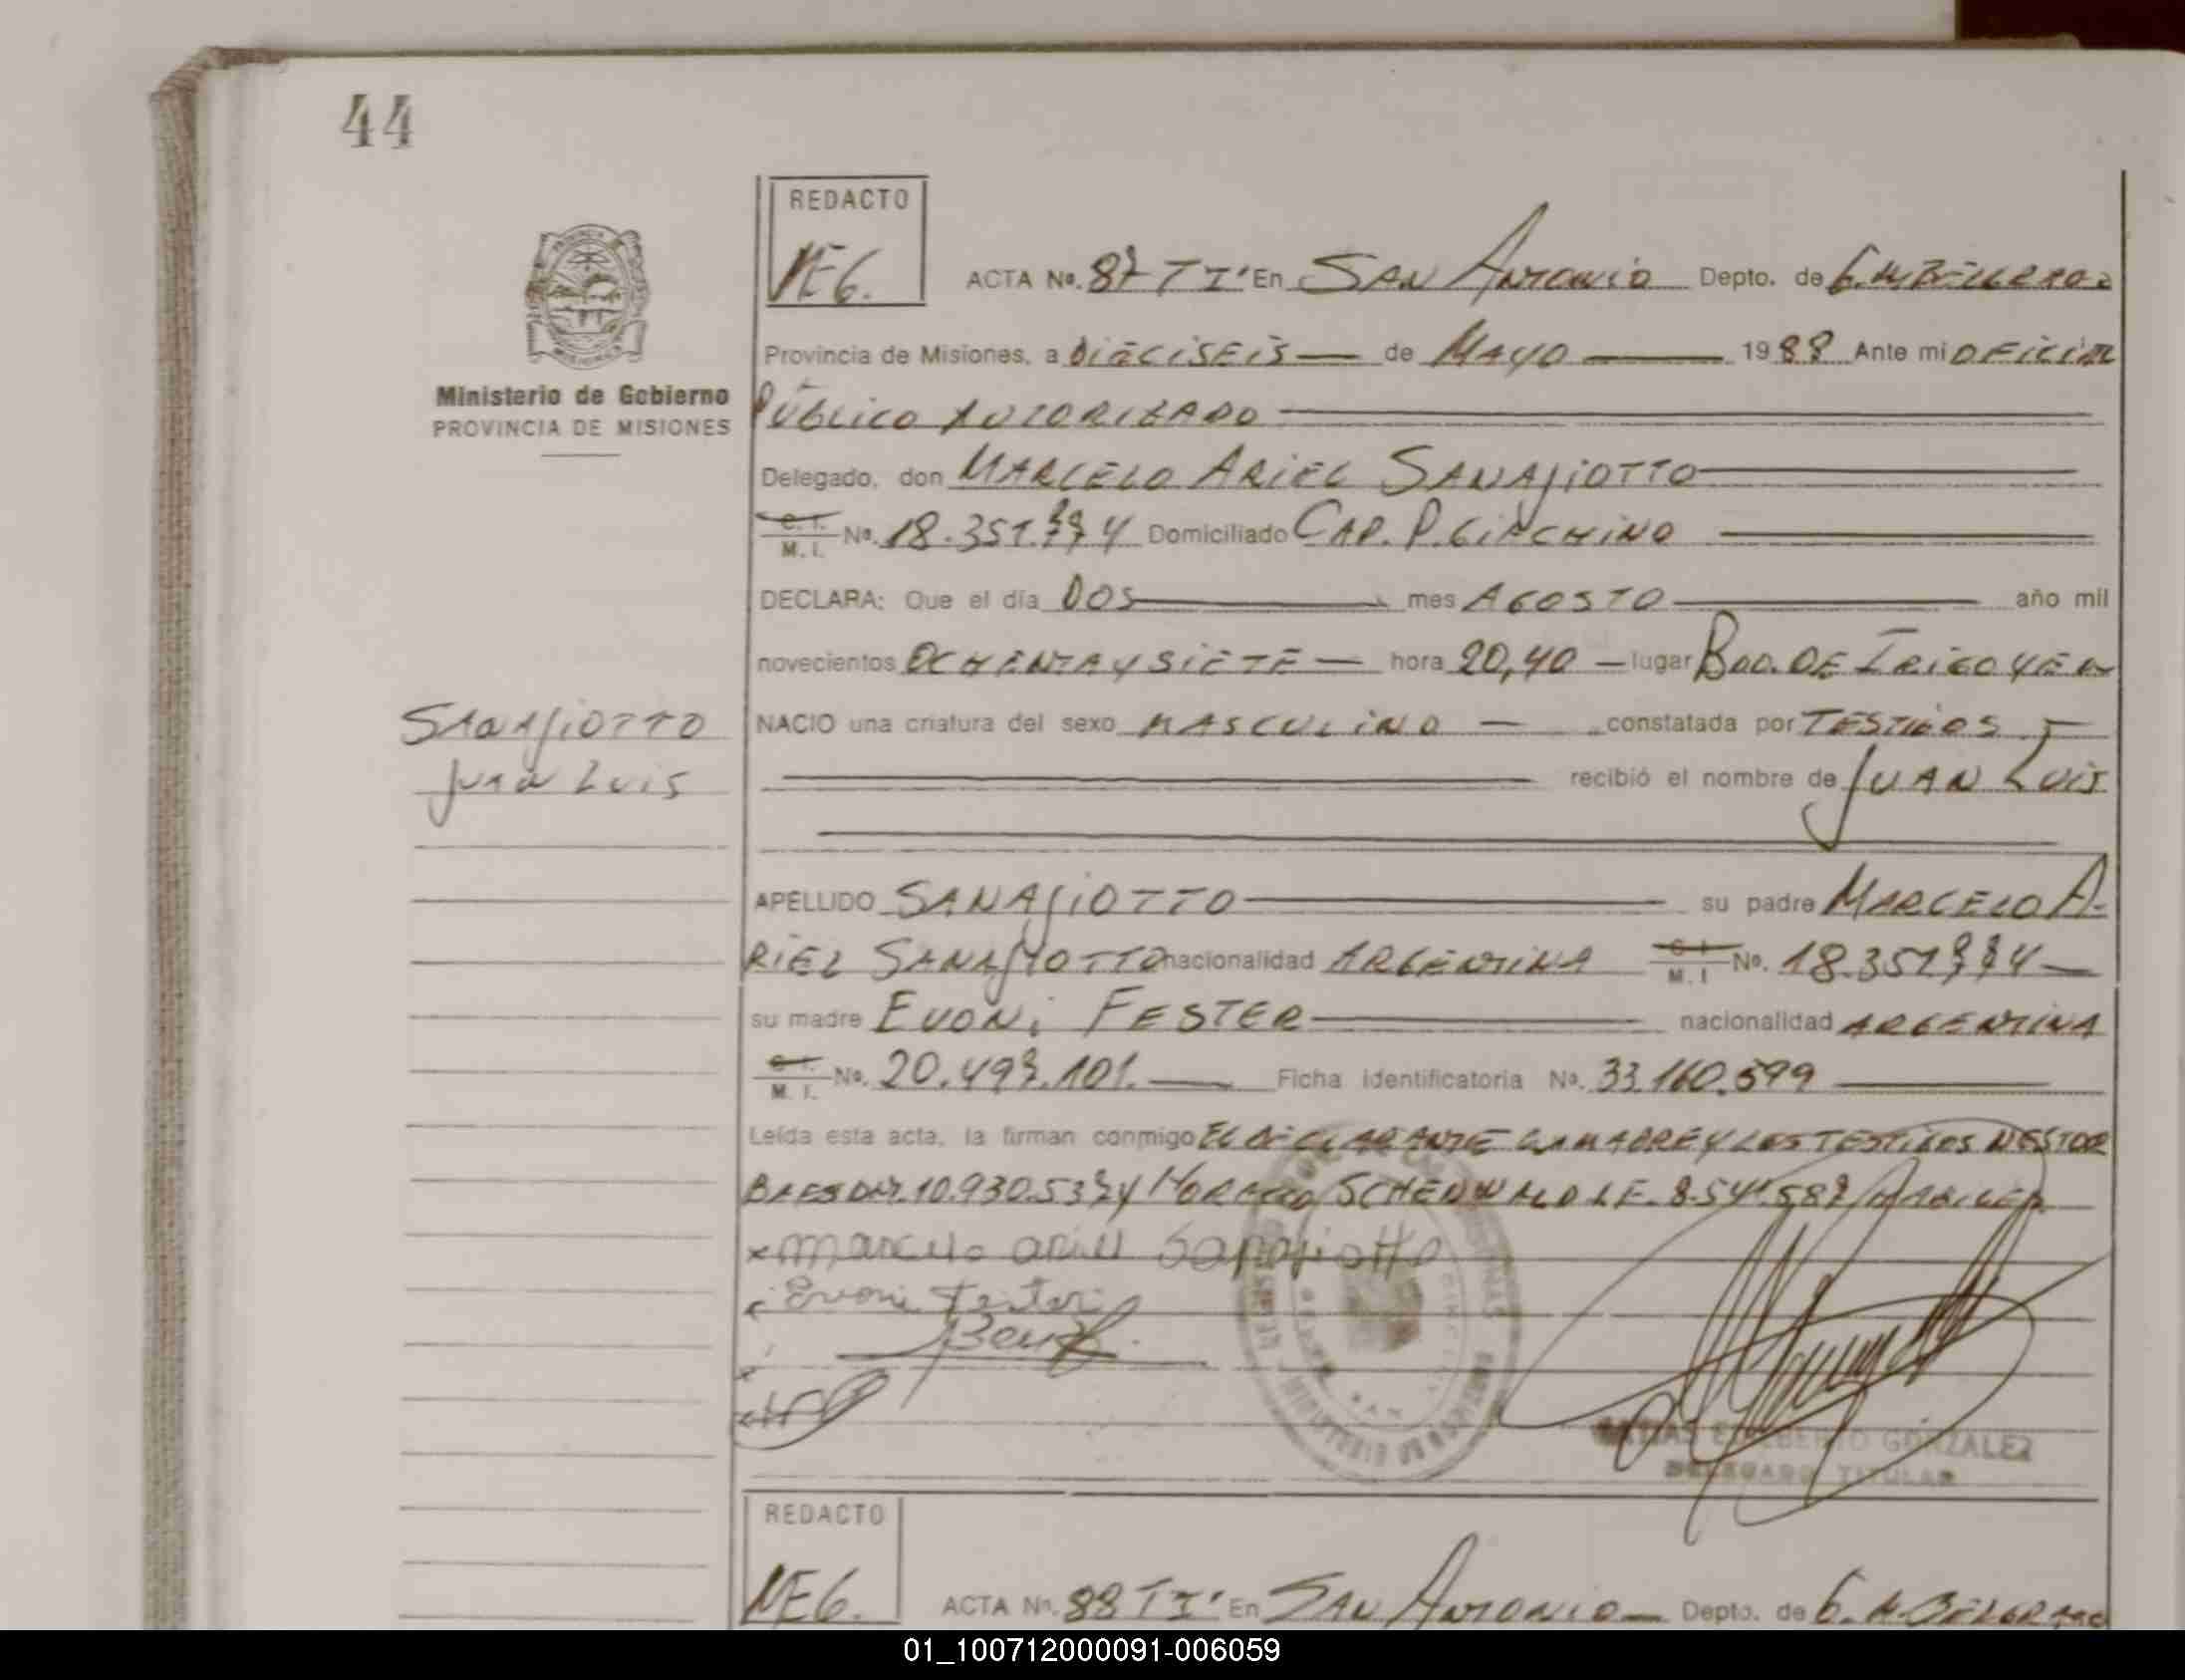 44
REDACTO
ACTA Nº. 87 T I' En SAN ANTONIO Depto. de G. M. BELGRANO
Provincia de Misiones, a DIECISEIS de MAYO 1988 Ante mi OFICIAL
Ministerio de Gobierno
PROVINCIA DE MISIONES
PÚBLICO AUTORIZADO
Delegado, don MARCELO ARIEL SANAGIOTTO
C. I. M. I. Nº. 18.351.774 Domiciliado CAP. P. GIACHINO
DECLARA: Que el día DOS mes AGOSTO año mil
novecientos OCHENTA Y SIETE — hora 20,40 — lugar BDO. DE IRIGOYEN
SANAGIOTTO
JUAN LUIS
NACIO una criatura del sexo MASCULINO — constatada por TESTIGOS —
recibió el nombre de JUAN LUIS
APELLIDO SANAGIOTTO su padre MARCELO A-
RIEL SANAGIOTTO nacionalidad ARGENTINA C. I. M. I Nº. 18.351.774 —
su madre EVONI FESTER nacionalidad ARGENTINA
C. I. M. I. Nº. 20.497.101. — Ficha identificatoria Nº. 33.160.599
Leída esta acta, la firman conmigo EL DECLARANTE LA MADRE Y LOS TESTIGOS NESTOR
BAES DNI. 10.930.537 Y HORACIO SCHENWALD L.E. 8.541.587
x marcelo ariel Sanagiotto
Evoni Fester
MATIAS EDELBERTO GONZALEZ
DELEGADO TITULAR
REDACTO
ACTA Nº. 88 T I' En SAN ANTONIO — Depto. de G. M. BELGRANO
01_100712000091-006059